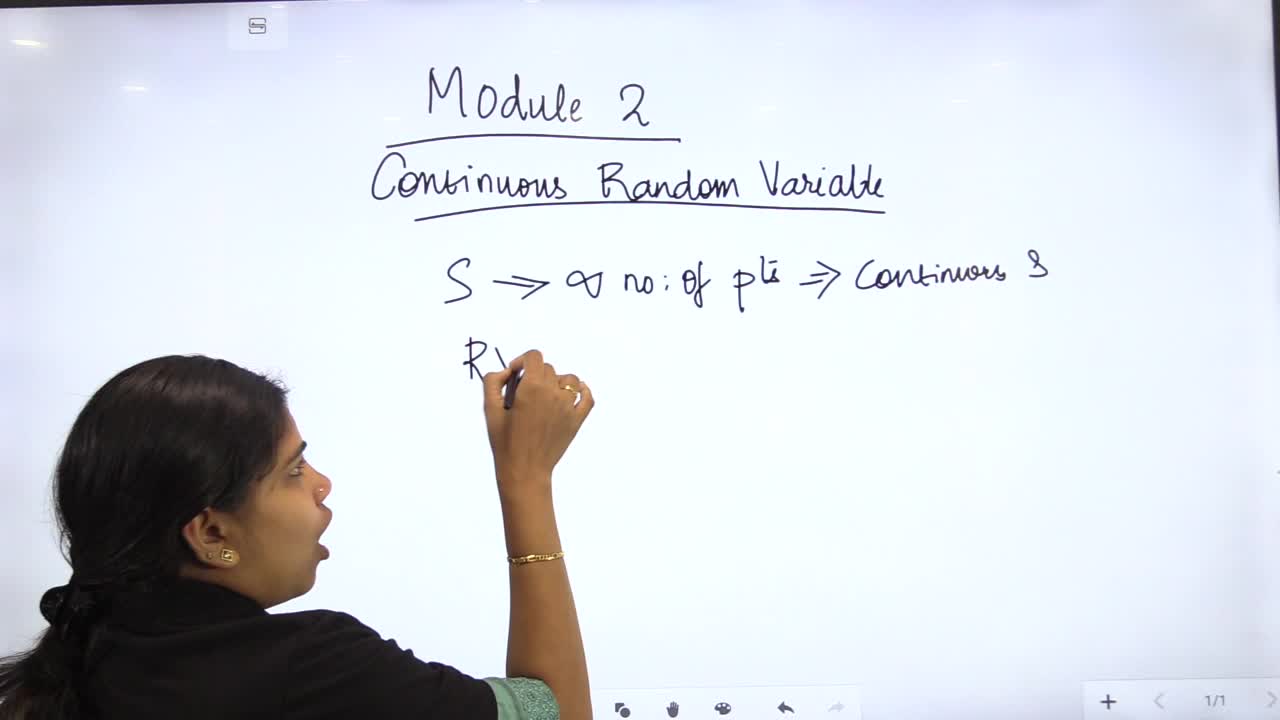 Module 2
Continuous Random Variable
S ⇒ ∞ no: of pts ⇒ Continuous S
R
1/1